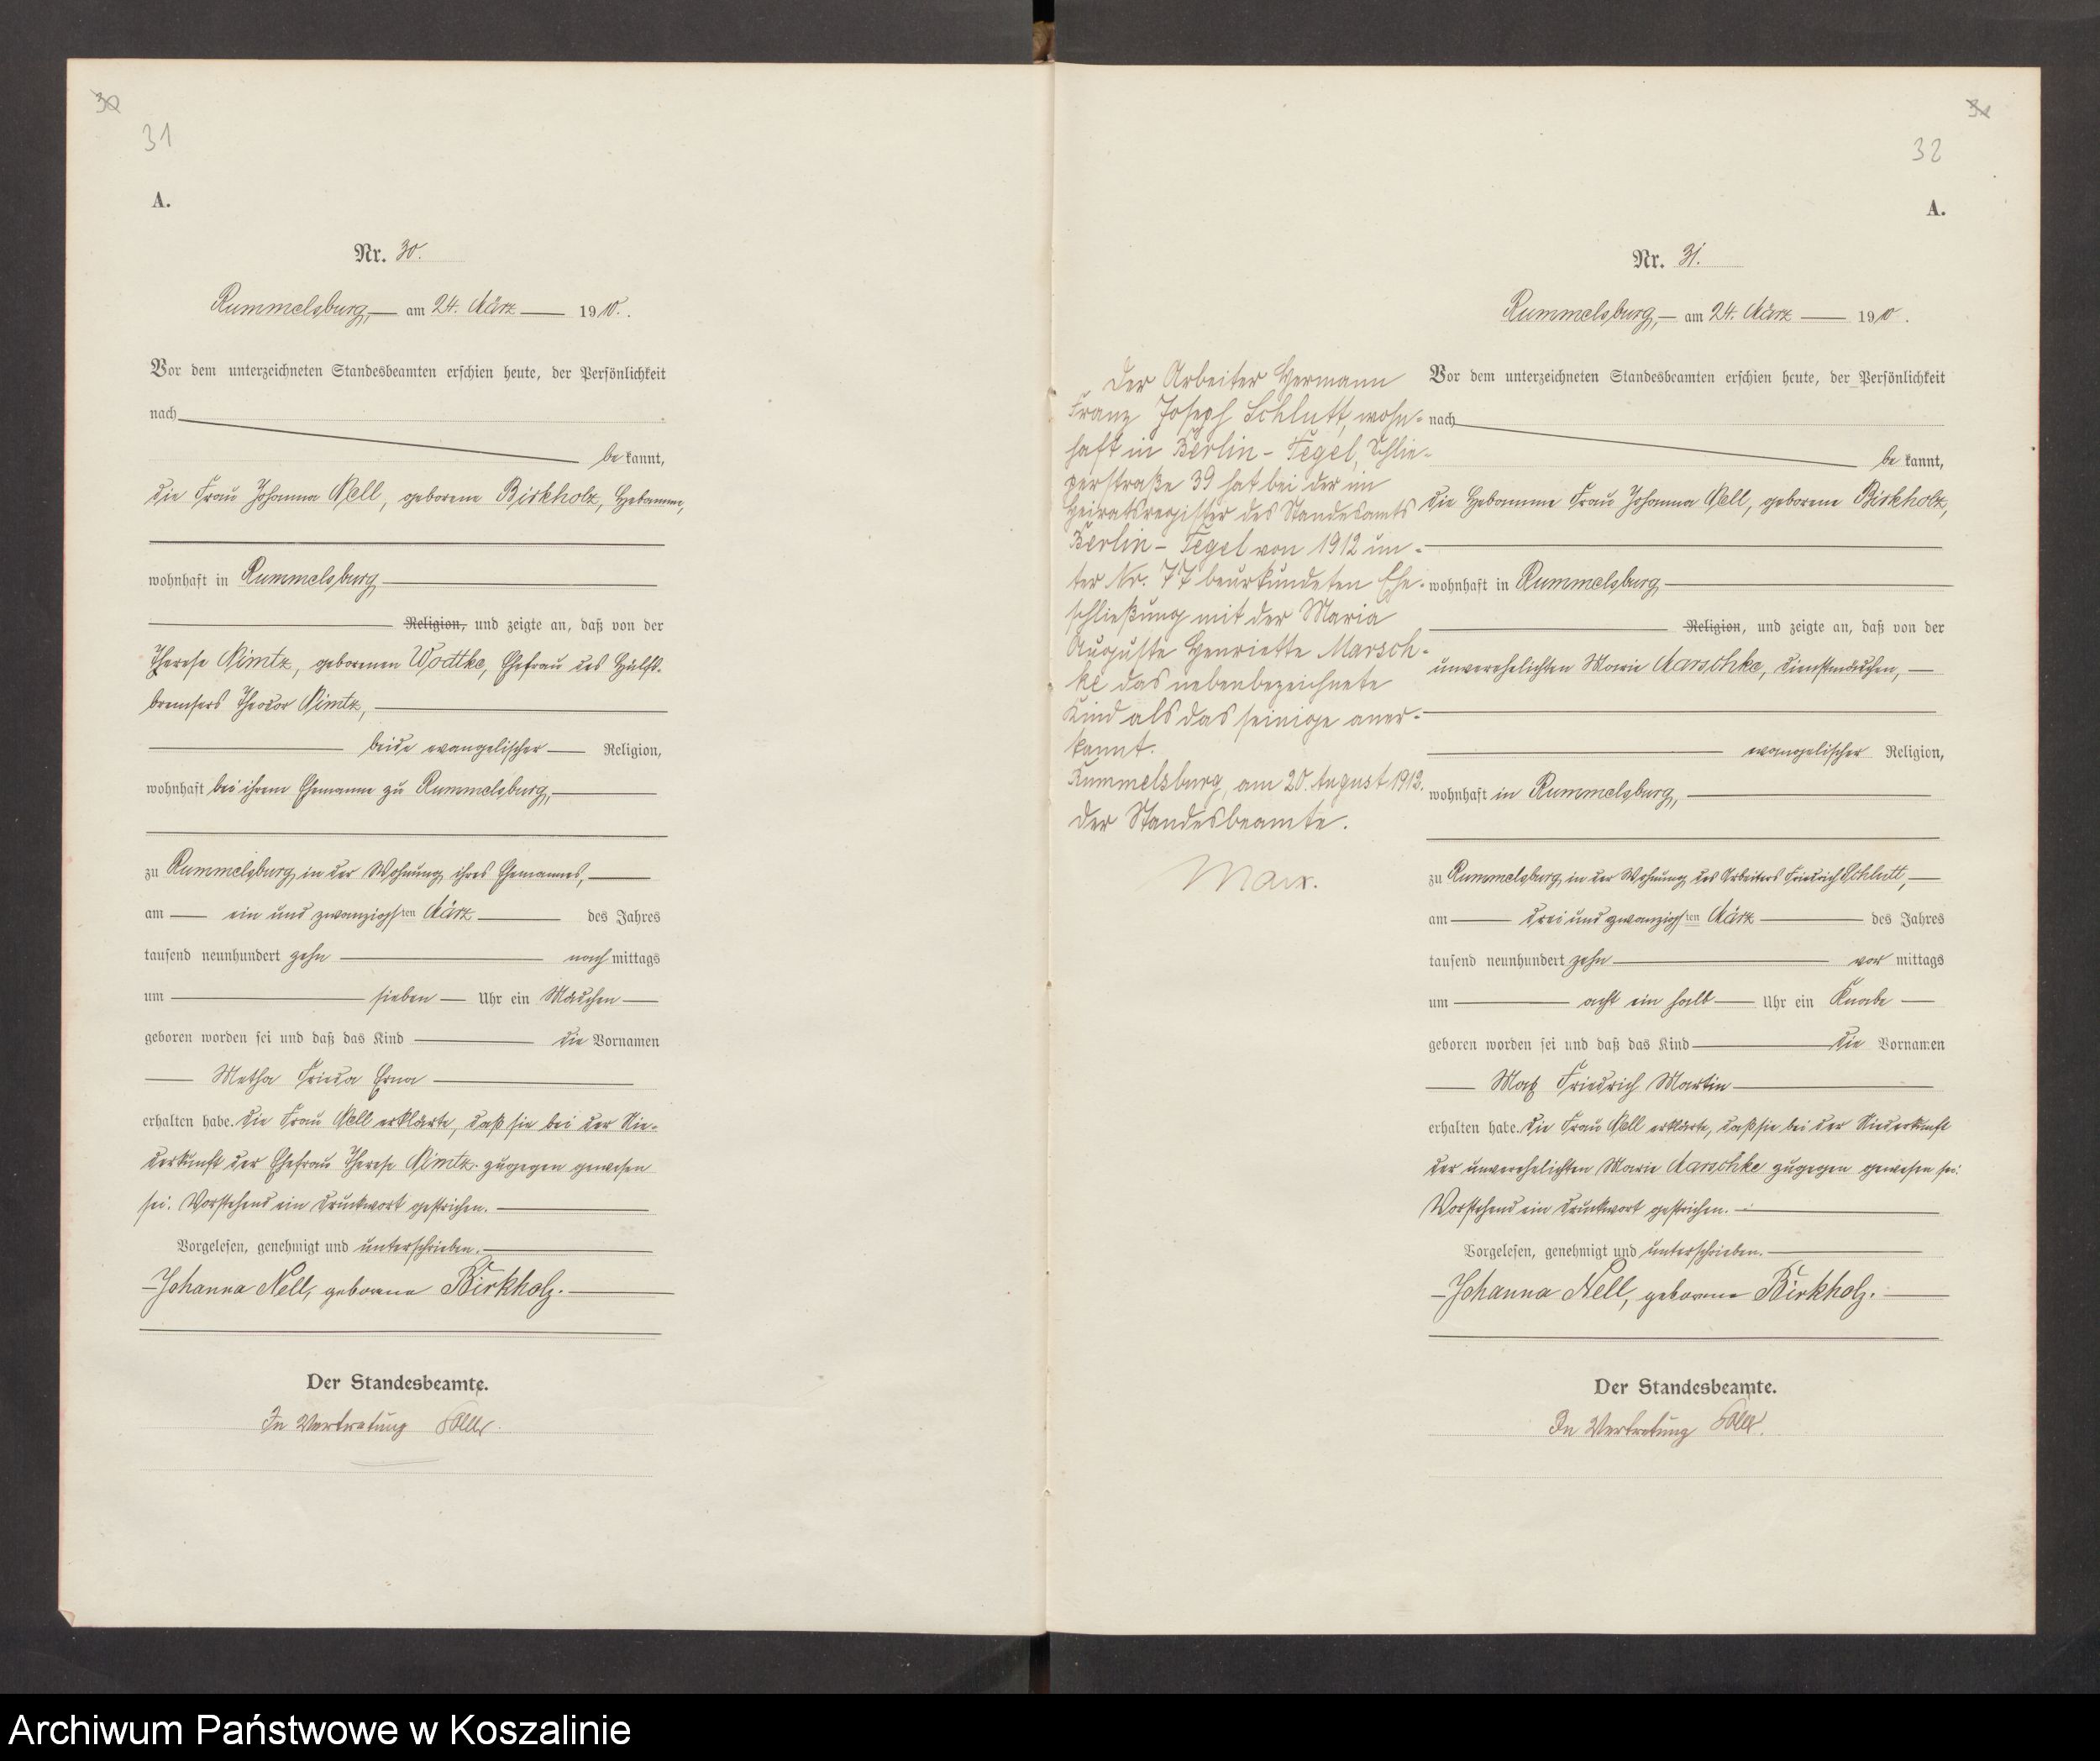 30
31
A.
Nr. 30.
Rummelsburg, am 24. März 1910.
Vor dem unterzeichneten Standesbeamten erschien heute, der Persönlichkeit
nach
be kannt,
die Frau Johanna Nell, geborene Birkholz, Hebamme,
wohnhaft in Rummelsburg
Religion, und zeigte an, daß von der
Therese Nimtz, geborenen Wodtke, Ehefrau des Hülfs-
bremsers Theodor Nimtz,
beide evangelischer Religion,
wohnhaft bei ihrem Ehemanne zu Rummelsburg,
zu Rummelsburg, in der Wohnung ihres Ehemannes,
am ein und zwanzigsten März des Jahres
tausend neunhundert zehn nach mittags
um sieben Uhr ein Mädchen
geboren worden sei und daß das Kind die Vornamen
Metha Frieda Erna
erhalten habe. Die Frau Nell erklärte, daß sie bei der Nie-
derkunft der Ehefrau Therese Nimtz zugegen gewesen
sei. Vorstehend ein Druckwort gestrichen.
Vorgelesen, genehmigt und unterschrieben.
Johanna Nell, geborene Birkholz.
Der Standesbeamte.
In Vertretung
32
A.
Nr. 31.
Rummelsburg, am 24. März 1910.
Vor dem unterzeichneten Standesbeamten erschien heute, der Persönlichkeit
nach
be kannt,
die Hebamme Frau Johanna Nell, geborene Birkholz,
wohnhaft in Rummelsburg
Religion, und zeigte an, daß von der
unverehelichten Marie Marschke, Dienstmädchen,
evangelischer Religion,
wohnhaft in Rummelsburg,
zu Rummelsburg, in der Wohnung des Arbeiters Friedrich Schlutt,
am drei und zwanzigsten März des Jahres
tausend neunhundert zehn vor mittags
um acht ein halb Uhr ein Knabe
geboren worden sei und daß das Kind die Vornamen
Max Friedrich Martin
erhalten habe. Die Frau Nell erklärte, daß sie bei der Niederkunft
der unverehelichten Marie Marschke zugegen gewesen sei.
Vorstehend ein Druckwort gestrichen.
Vorgelesen, genehmigt und unterschrieben.
Johanna Nell, geborene Birkholz.
Der Standesbeamte.
In Vertretung
Der Arbeiter Hermann
Franz Joseph Schlutt, wohn-
haft in Berlin - Tegel, Schlie-
perstraße 39 hat bei der im
Heiratsregister des Standesamts
Berlin - Tegel von 1912 un-
ter Nr. 77 beurkundeten Ehe-
schließung mit der Maria
Auguste Henriette Marsch-
ke das nebenbezeichnete
Kind als das seinige aner-
kannt.
Rummelsburg, am 20. August 1912.
Der Standesbeamte.
Marx.
Archiwum Państwowe w Koszalinie